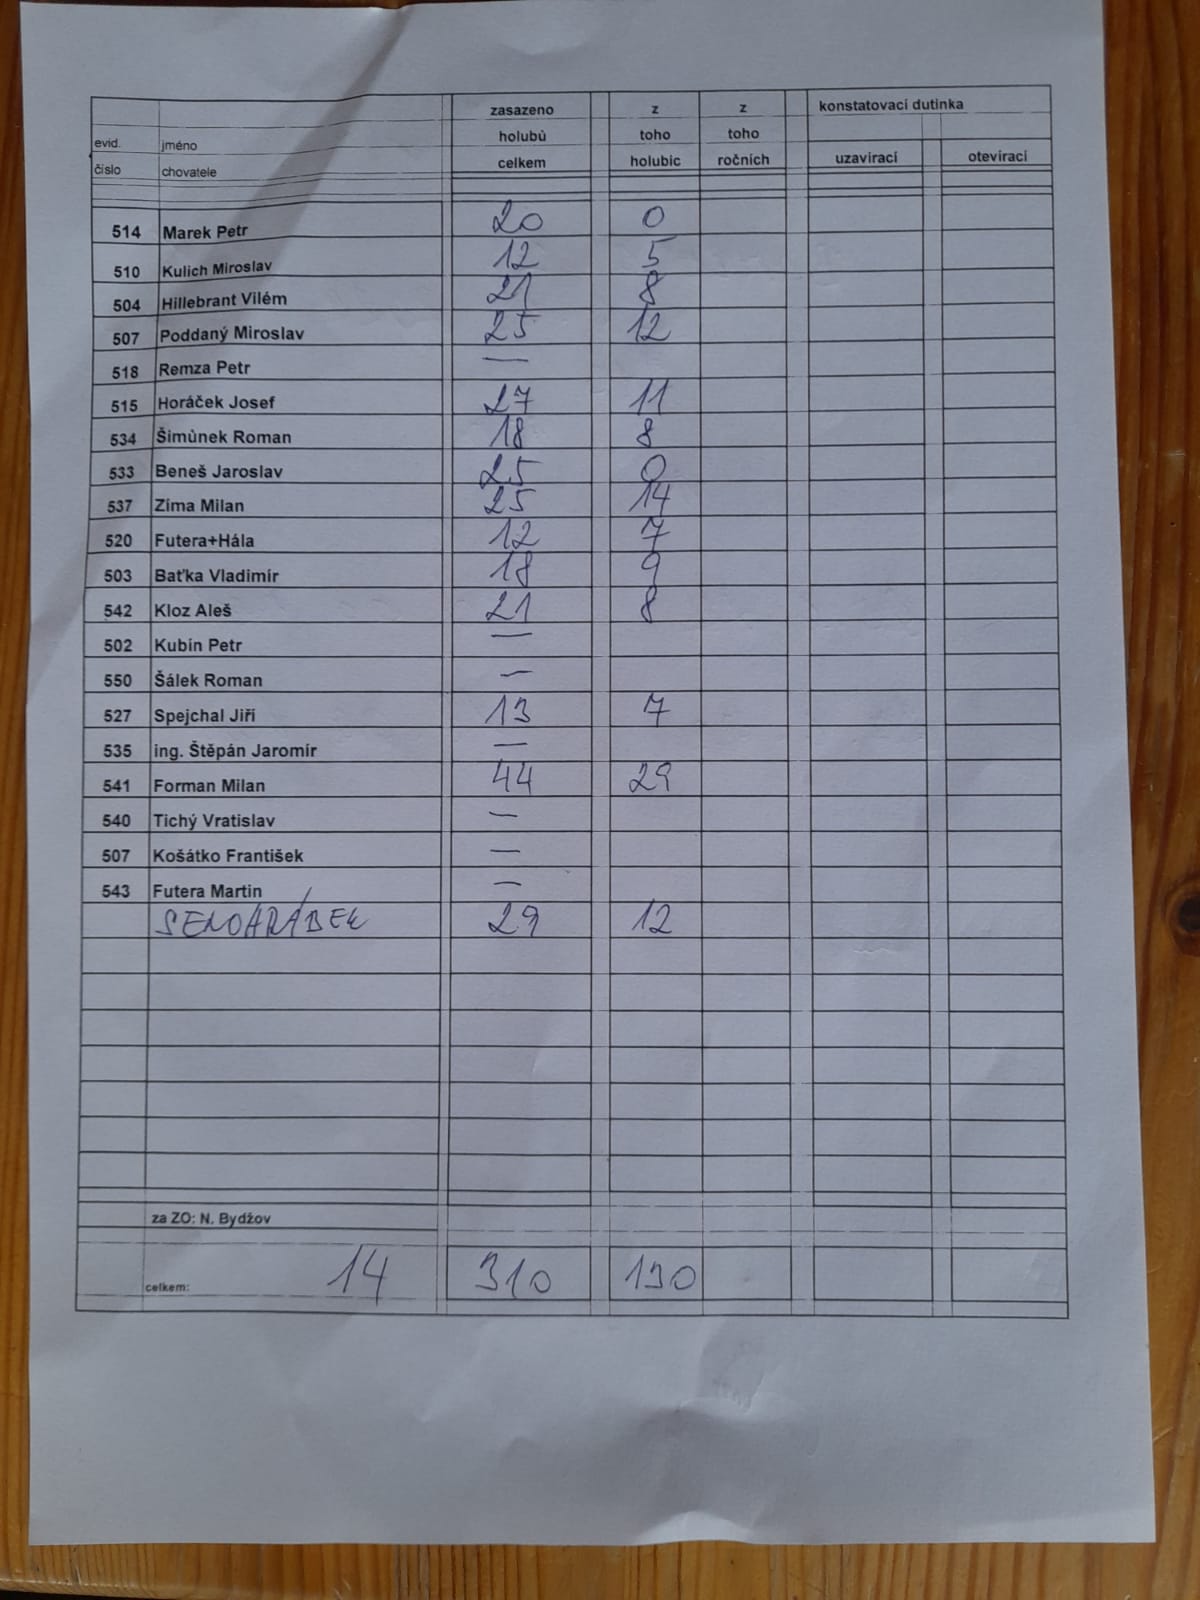 zasazeno z z konstatovací dutinka
evid. jméno holubů toho toho
číslo chovatele celkem holubic ročních uzavírací otevírací
514 Marek Petr 20 0
510 Kulich Miroslav 12 5
504 Hillebrant Vilém 21 8
507 Poddaný Miroslav 25 12
518 Remza Petr —
515 Horáček Josef 27 11
534 Šimùnek Roman 18 8
533 Beneš Jaroslav 25 0
537 Zíma Milan 25 14
520 Futera+Hála 12 7
503 Baťka Vladimír 18 9
542 Kloz Aleš 21 8
502 Kubín Petr —
550 Šálek Roman —
527 Spejchal Jiří 13 7
535 ing. Štěpán Jaromír —
541 Forman Milan 44 29
540 Tichý Vratislav —
507 Košátko František —
543 Futera Martin —
SENOHRÁBEK 29 12
za ZO: N. Bydžov
celkem: 14 310 130